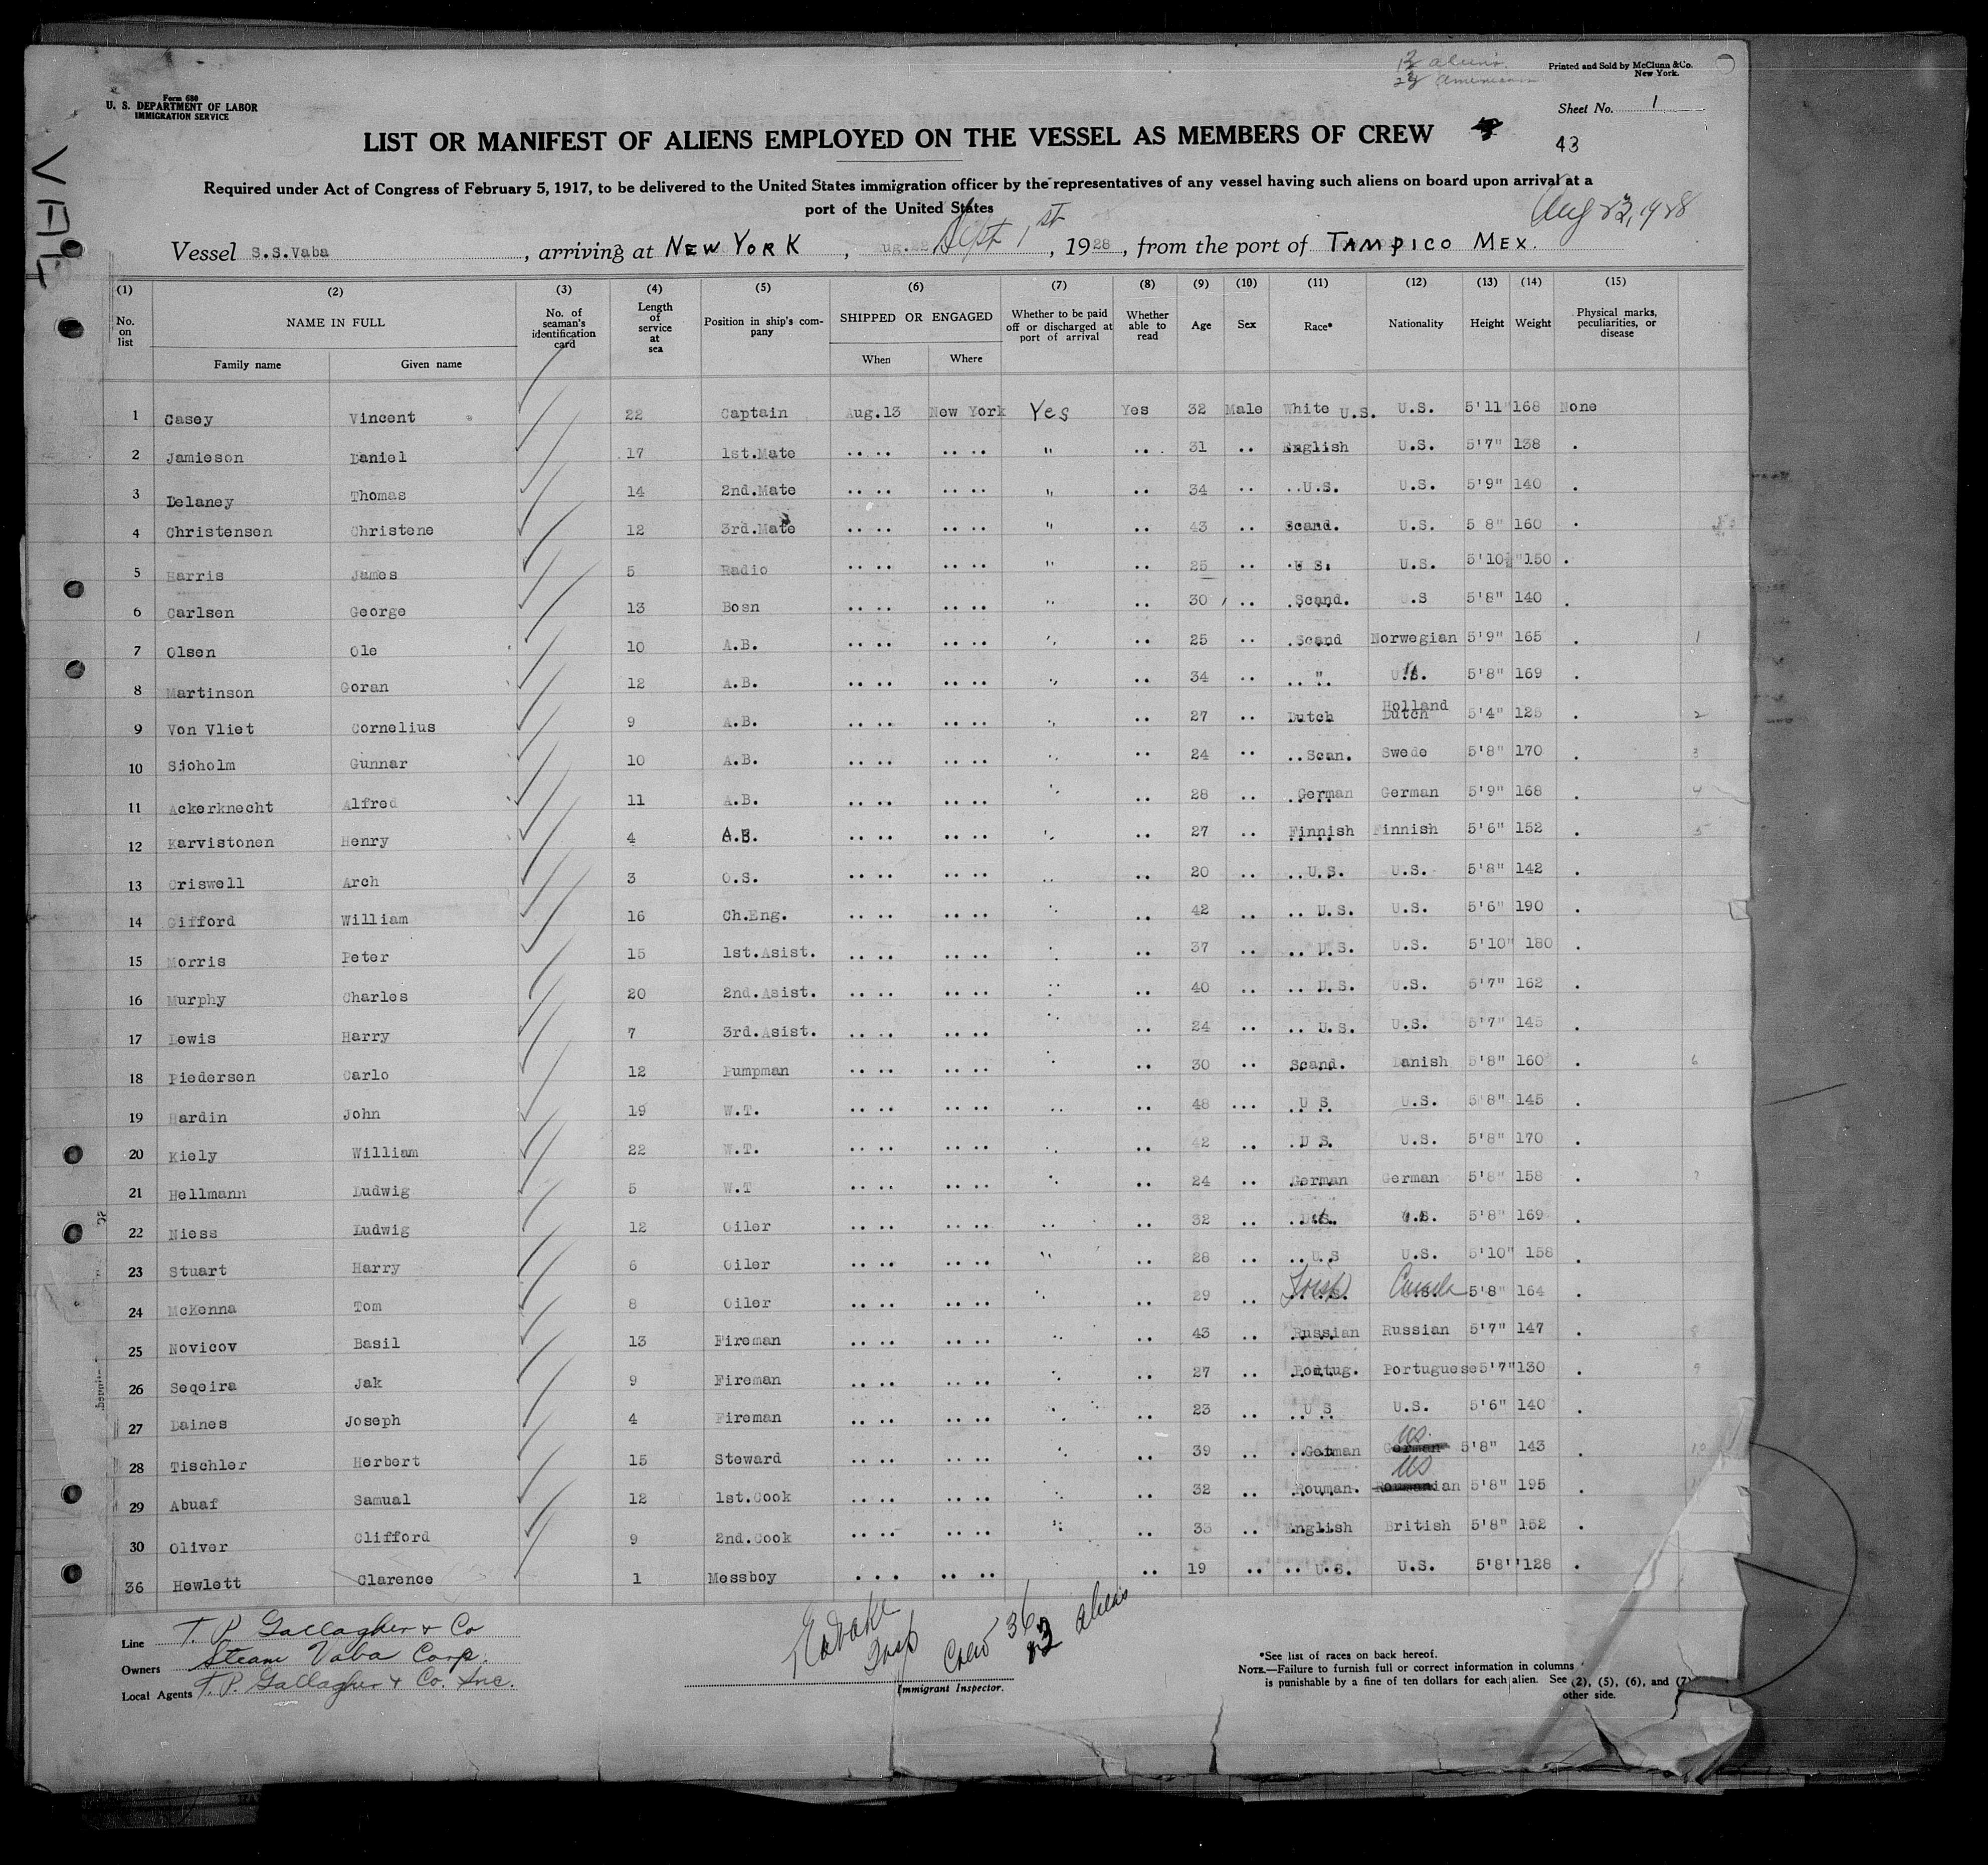 12 aliens.
Americans
Printed and Sold by McClunn & Co.
New York.
Form 680
U. S. DEPARTMENT OF LABOR
IMMIGRATION SERVICE
Sheet No. 1
LIST OR MANIFEST OF ALIENS EMPLOYED ON THE VESSEL AS MEMBERS OF CREW
43
Required under Act of Congress of February 5, 1917, to be delivered to the United States immigration officer by the representatives of any vessel having such aliens on board upon arrival at a
port of the United States
Aug 23, 1928
Vessel S.S.Vaba, arriving at NEW YORK, Sept 1st, 1928, from the port of TAMPICO MEX.
(1) (2) (3) (4) (5) (6) (7) (8) (9) (10) (11) (12) (13) (14) (15)
No. on list NAME IN FULL No. of seaman's identification card Length of service at sea Position in ship's company SHIPPED OR ENGAGED Whether to be paid off or discharged at port of arrival Whether able to read Age Sex Race* Nationality Height Weight Physical marks, peculiarities, or disease
Family name Given name When Where
1 Casey Vincent 22 Captain Aug.13 New York Yes Yes 32 Male White U.S. U.S. 5'11 168 None
2 Jamieson Daniel 17 1st.Mate .. .. .. .. " .. 31 .. English U.S. 5'7" 138 .
3 Delaney Thomas 14 2nd.Mate .. .. .. .. " .. 34 .. ..U.S. U.S. 5'9" 140 .
4 Christensen Christene 12 3rd.Mate .. .. .. .. " .. 43 .. Scand. U.S. 5 8" 160 .
5 Harris James 5 Radio .. .. .. .. " .. 25 .. .U S. U.S. 5'10½"150 .
6 Carlsen George 13 Bosn .. .. .. .. " .. 30 .. Scand. U.S 5'8" 140 .
7 Olsen Ole 10 A.B. .. .. .. .. " .. 25 .. Scand Norwegian 5'9" 165 . 1
8 Martinson Goran 12 A.B. .. .. .. .. " .. 34 .. .. ". U.S. 5'8" 169 .
9 Von Vliet Cornelius 9 A.B. .. .. .. .. " .. 27 .. Dutch Holland Dutch 5'4" 125 . 2
10 Sjoholm Gunnar 10 A.B. .. .. .. .. " .. 24 .. ..Scan. Swede 5'8" 170 . 3
11 Ackerknecht Alfred 11 A.B. .. .. .. .. " .. 28 .. German German 5'9" 168 . 4
12 Karvistonen Henry 4 A.B. .. .. .. .. " .. 27 .. Finnish Finnish 5'6" 152 . 5
13 Criswell Arch 3 O.S. .. .. .. .. .. .. 20 .. ..U.S. U.S. 5'8" 142 .
14 Gifford William 16 Ch.Eng. .. .. .. .. " .. 42 .. .. U.S. U.S. 5'6" 190 .
15 Morris Peter 15 1st.Asist. .. .. .. .. " .. 37 .. .. U.S. U.S. 5'10" 180 .
16 Murphy Charles 20 2nd.Asist. .. .. .. .. " .. 40 .. .. U.S. U.S. 5'7" 162 .
17 Lewis Harry 7 3rd.Asist. .. .. .. .. " .. 24 .. .. U.S. U.S. 5'7" 145 .
18 Piedersen Carlo 12 Pumpman .. .. .. .. " .. 30 .. Scand. Danish 5'8" 160 . 6
19 Hardin John 19 W.T. .. .. .. .. .. .. 48 ... U S U.S. 5'8" 145 .
20 Kiely William 22 W.T. .. .. .. .. " .. 42 .. .U S. U.S. 5'8" 170 .
21 Hellmann Ludwig 5 W.T .. .. .. .. " .. 24 .. German German 5'8" 158 . 7
22 Niess Ludwig 12 Oiler .. .. .. .. .. .. 32 .. U.S. U.S. 5'8" 169 .
23 Stuart Harry 6 Oiler .. .. .. .. " .. 28 .. ..U S U.S. 5'10" 158 .
24 McKenna Tom 8 Oiler .. .. .. .. " .. 29 .. Irish Canada 5'8" 164 .
25 Novicov Basil 13 Fireman .. .. .. .. " .. 43 .. Russian Russian 5'7" 147 . 8
26 Seqeira Jak 9 Fireman .. .. .. .. " .. 27 .. Portug. Portuguese 5'7"130 . 9
27 Daines Joseph 4 Fireman .. .. .. .. " .. 23 .. U S U.S. 5'6" 140 .
28 Tischler Herbert 15 Steward .. .. .. .. " .. 39 .. German German US. 5'8" 143 . 10
29 Abuaf Samual 12 1st.Cook .. .. .. .. " .. 32 .. Rouman. Roumanian US 5'8" 195 .
30 Oliver Clifford 9 2nd.Cook .. .. .. .. " .. 33 .. English British 5'8" 152 .
36 Hewlett Clarence 1 Messboy . .. .. .. .. 19 .. .. U.S. U.S. 5'8" 128 .
Line T. P. Gallagher & Co
Owners Steam Vaba Corp.
Local Agents T. P. Gallagher & Co. Inc.
Insp Crew 36
12 aliens
Immigrant Inspector.
*See list of races on back hereof.
NOTE.—Failure to furnish full or correct information in columns
is punishable by a fine of ten dollars for each alien. See (2), (5), (6), and (7)
other side.